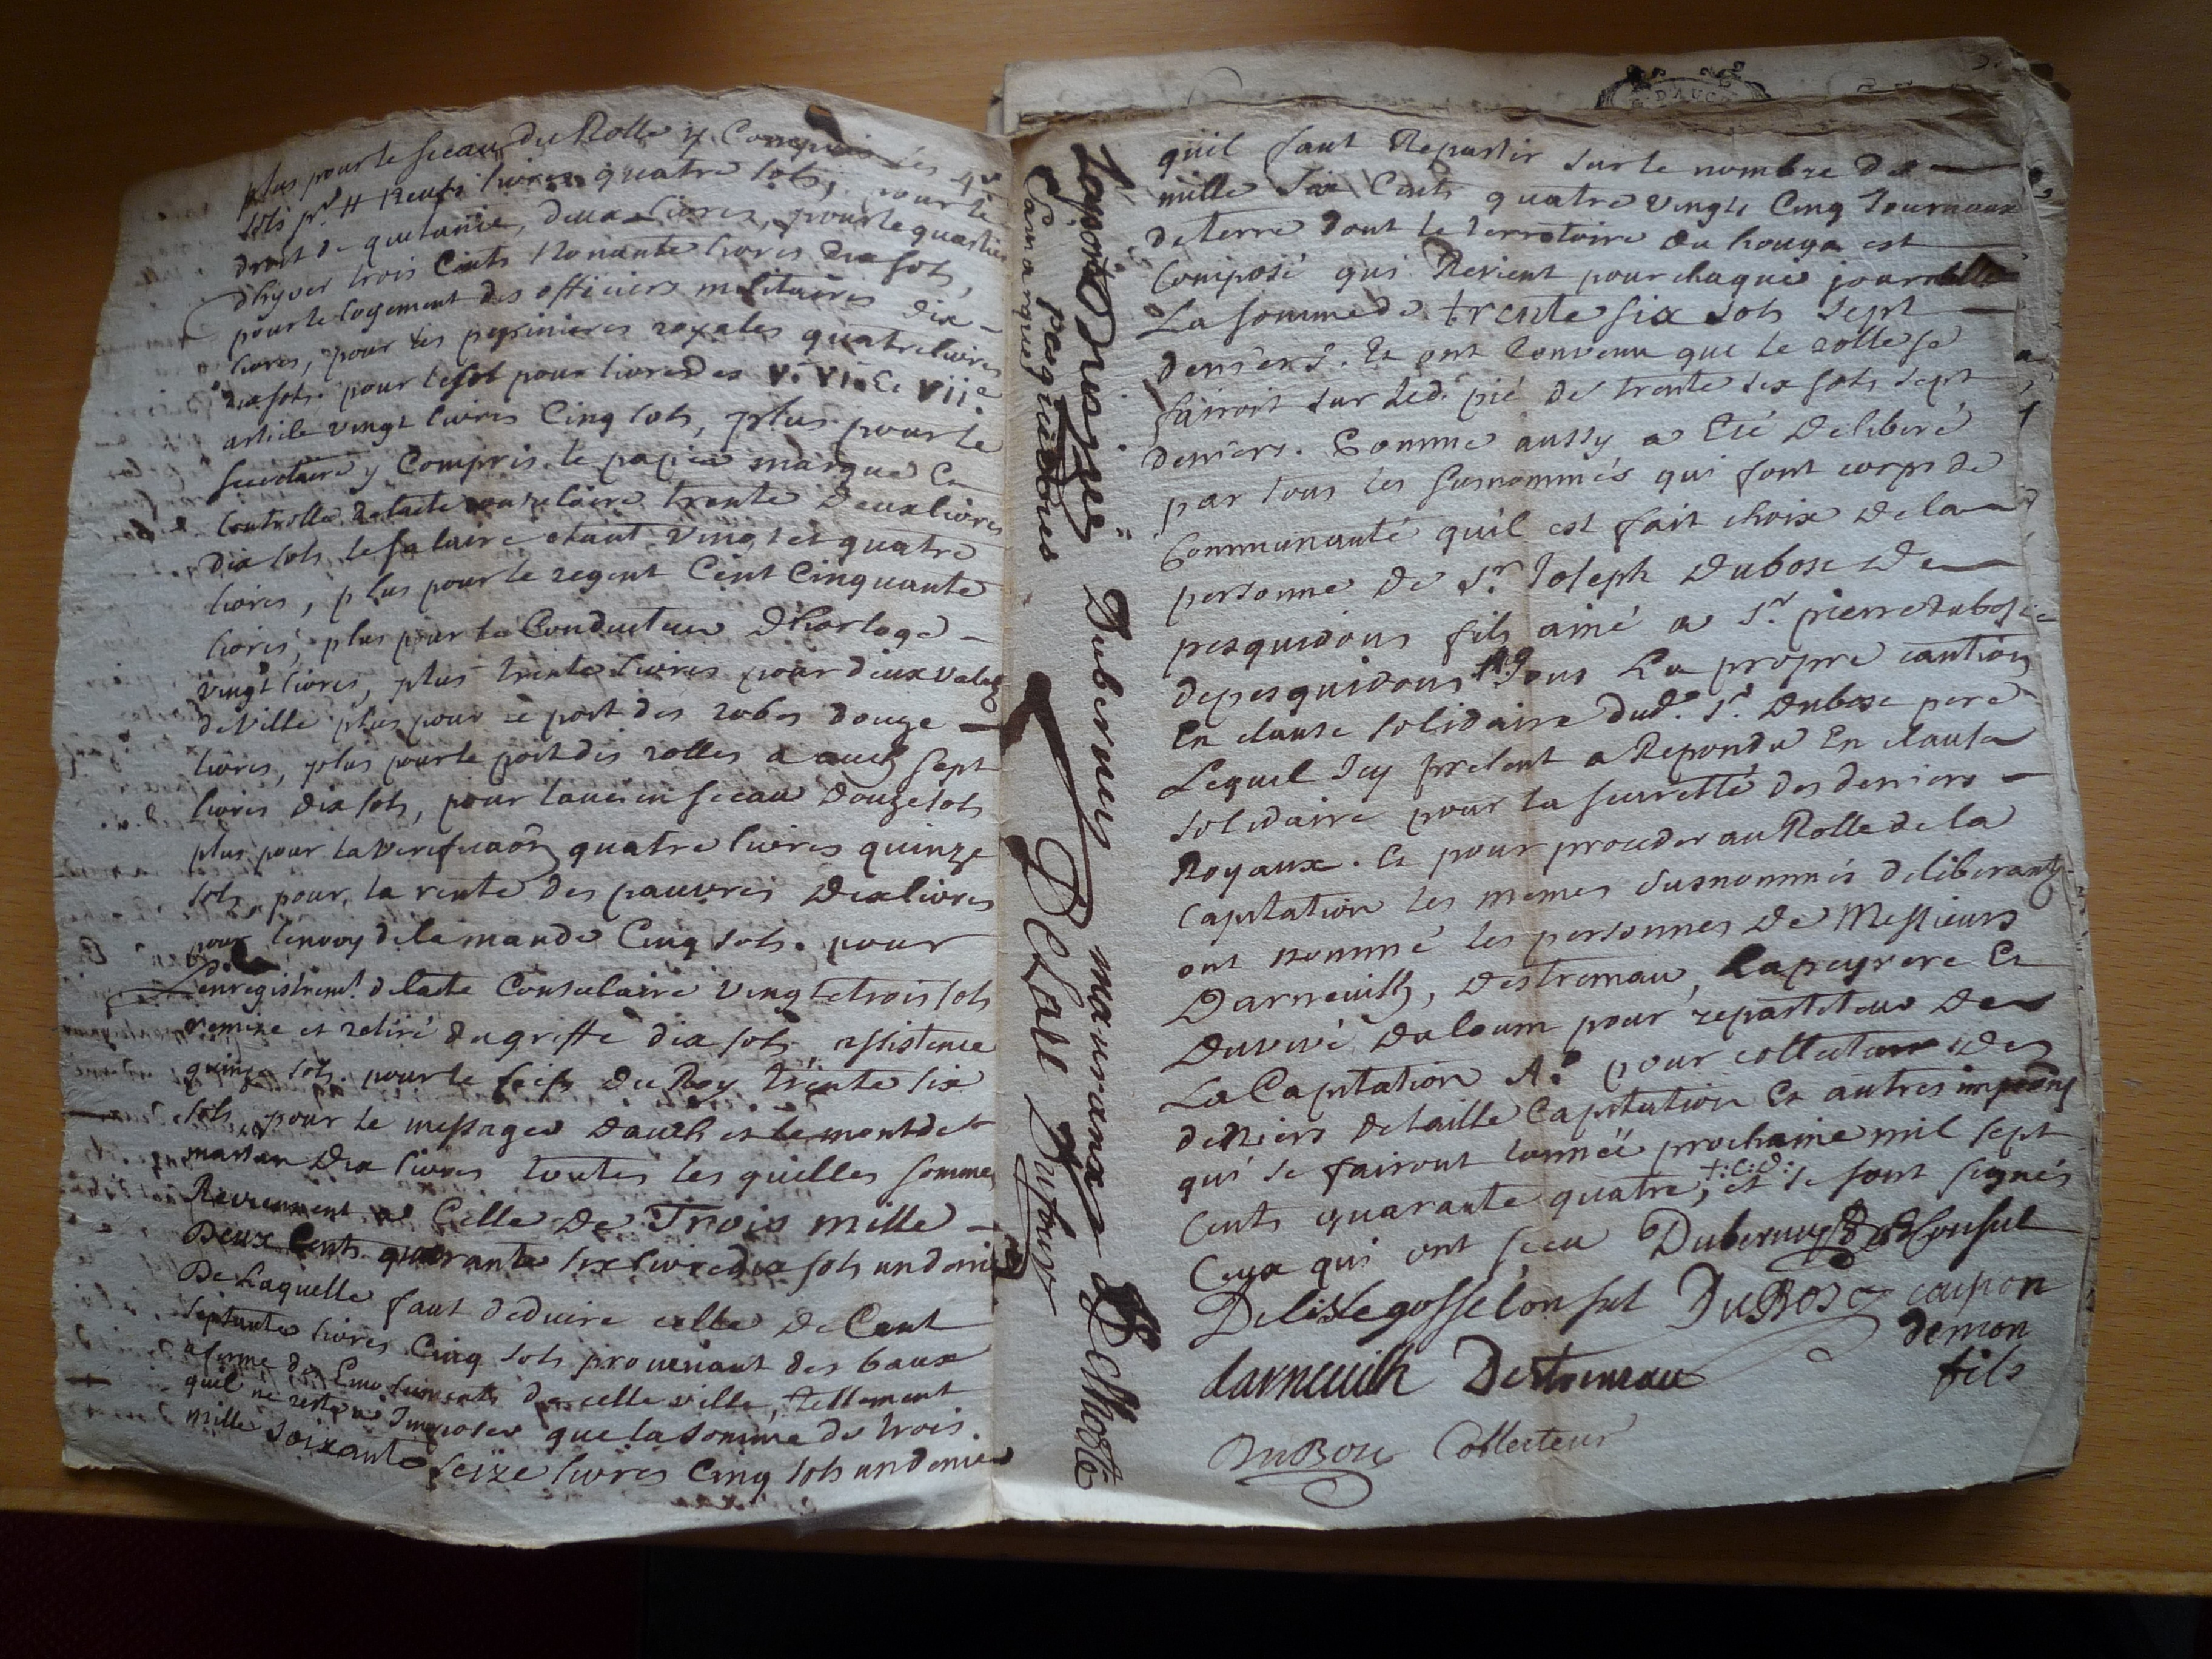 plus pour le sceau du Rolle y Compris les 4
sols pr. # Neufs livres quatre sols, pour le
droit de quitance, deux livres, pour le quartier
dhyver trois Cents Nonante livres dix sols,
pour le logement des officiers militaires dix
livres, pour les pepinieres royales quatre livres
dix sols. pour le sol pour livre des V. VI. Et VIIe
article vingt livres Cinq sols, plus pour le
secretaire y Compris le papier marqué Et
Controlle de lacte consulaire trente Deux livres
dix sols le salaire etant Vingt et quatre
livres, plus pour le regent Cent Cinquante
livres, plus pour le Conducteur Dhorloge
vingt livres, plus trente livres pour deux valets
de Ville plus pour le port des robes douze
livres, plus pour le port des rolles a auch sept
livres dix sols, pour sceau Douze sols
plus pour la verificaon quatre livres quinze
sols, pour la rente des pauvres dix livres
pour lenvoy de la mande Cinq sols. pour
Lenregistremt. de lacte Consulaire vingt et trois sols
remize et retiré du greffe dix sols assistence
quinze sols. pour le Du Roy trente six
sols, pour le messager dauch et le mont de
marsan Dix livres toutes les quelles sommes
Reviennent a Celle De Trois mille
Deux Cents quarante six livres dix sols un denier
De Laquelle faut deduire celle De Cent
septante livres Cinq sols provenant des baux
a ferme des Emoluments de celle ville, tellement
quil ne reste a Imposer que la somme de trois
mille soixante seize livres Cinq sols un denier
Laporte Duizgu Dubernes maurans DeMotte
Camarque pesquidous DeLase Dufour
quil faut Repartir sur le nombre de
mille six Cents quatre vingts Cinq Journaux
de terre dont le terrotoire du houga est
Composé qui Revient pour chaque journal
La somme de trente six sols sept
deniers. Et ont Convenu que le rolle se
fairoit sur led. pié de trente six sols sept
deniers. Comme aussy a Eté Deliberé
par tous les susnommés qui font corps de
Communauté quil est fait choix de la
personne de Sr. Joseph Dubosc De
pesquidous fils ainé a Sr. pierre Dubosc
de pesquidous sous La propre caution
En clause solidaire dud. Sr. Dubosc pere
Lequel Icy present a Repondu En clause
solidaire pour la seurette des deniers
Royaux. Et pour proceder au Rolle de la
Capitation les memes susnommés deliberants
ont nommé les personnes de Messieurs
Darneuilh, Destremau, Lapeyrere Et
Duvivé Duloum pour repartiteurs De
La Capitation pour collecteur des
deniers de taille Capitation Et autres impoons
qui se fairont lannée prochaine mil sept
Cents quarante quatre, et se sont signés
Ceux qui ont sceu Dubernes Consul
Delisle gosse Consul DuBosc caupon
de mon
fils
darneuilh Destremau
DuBosc Collecteur